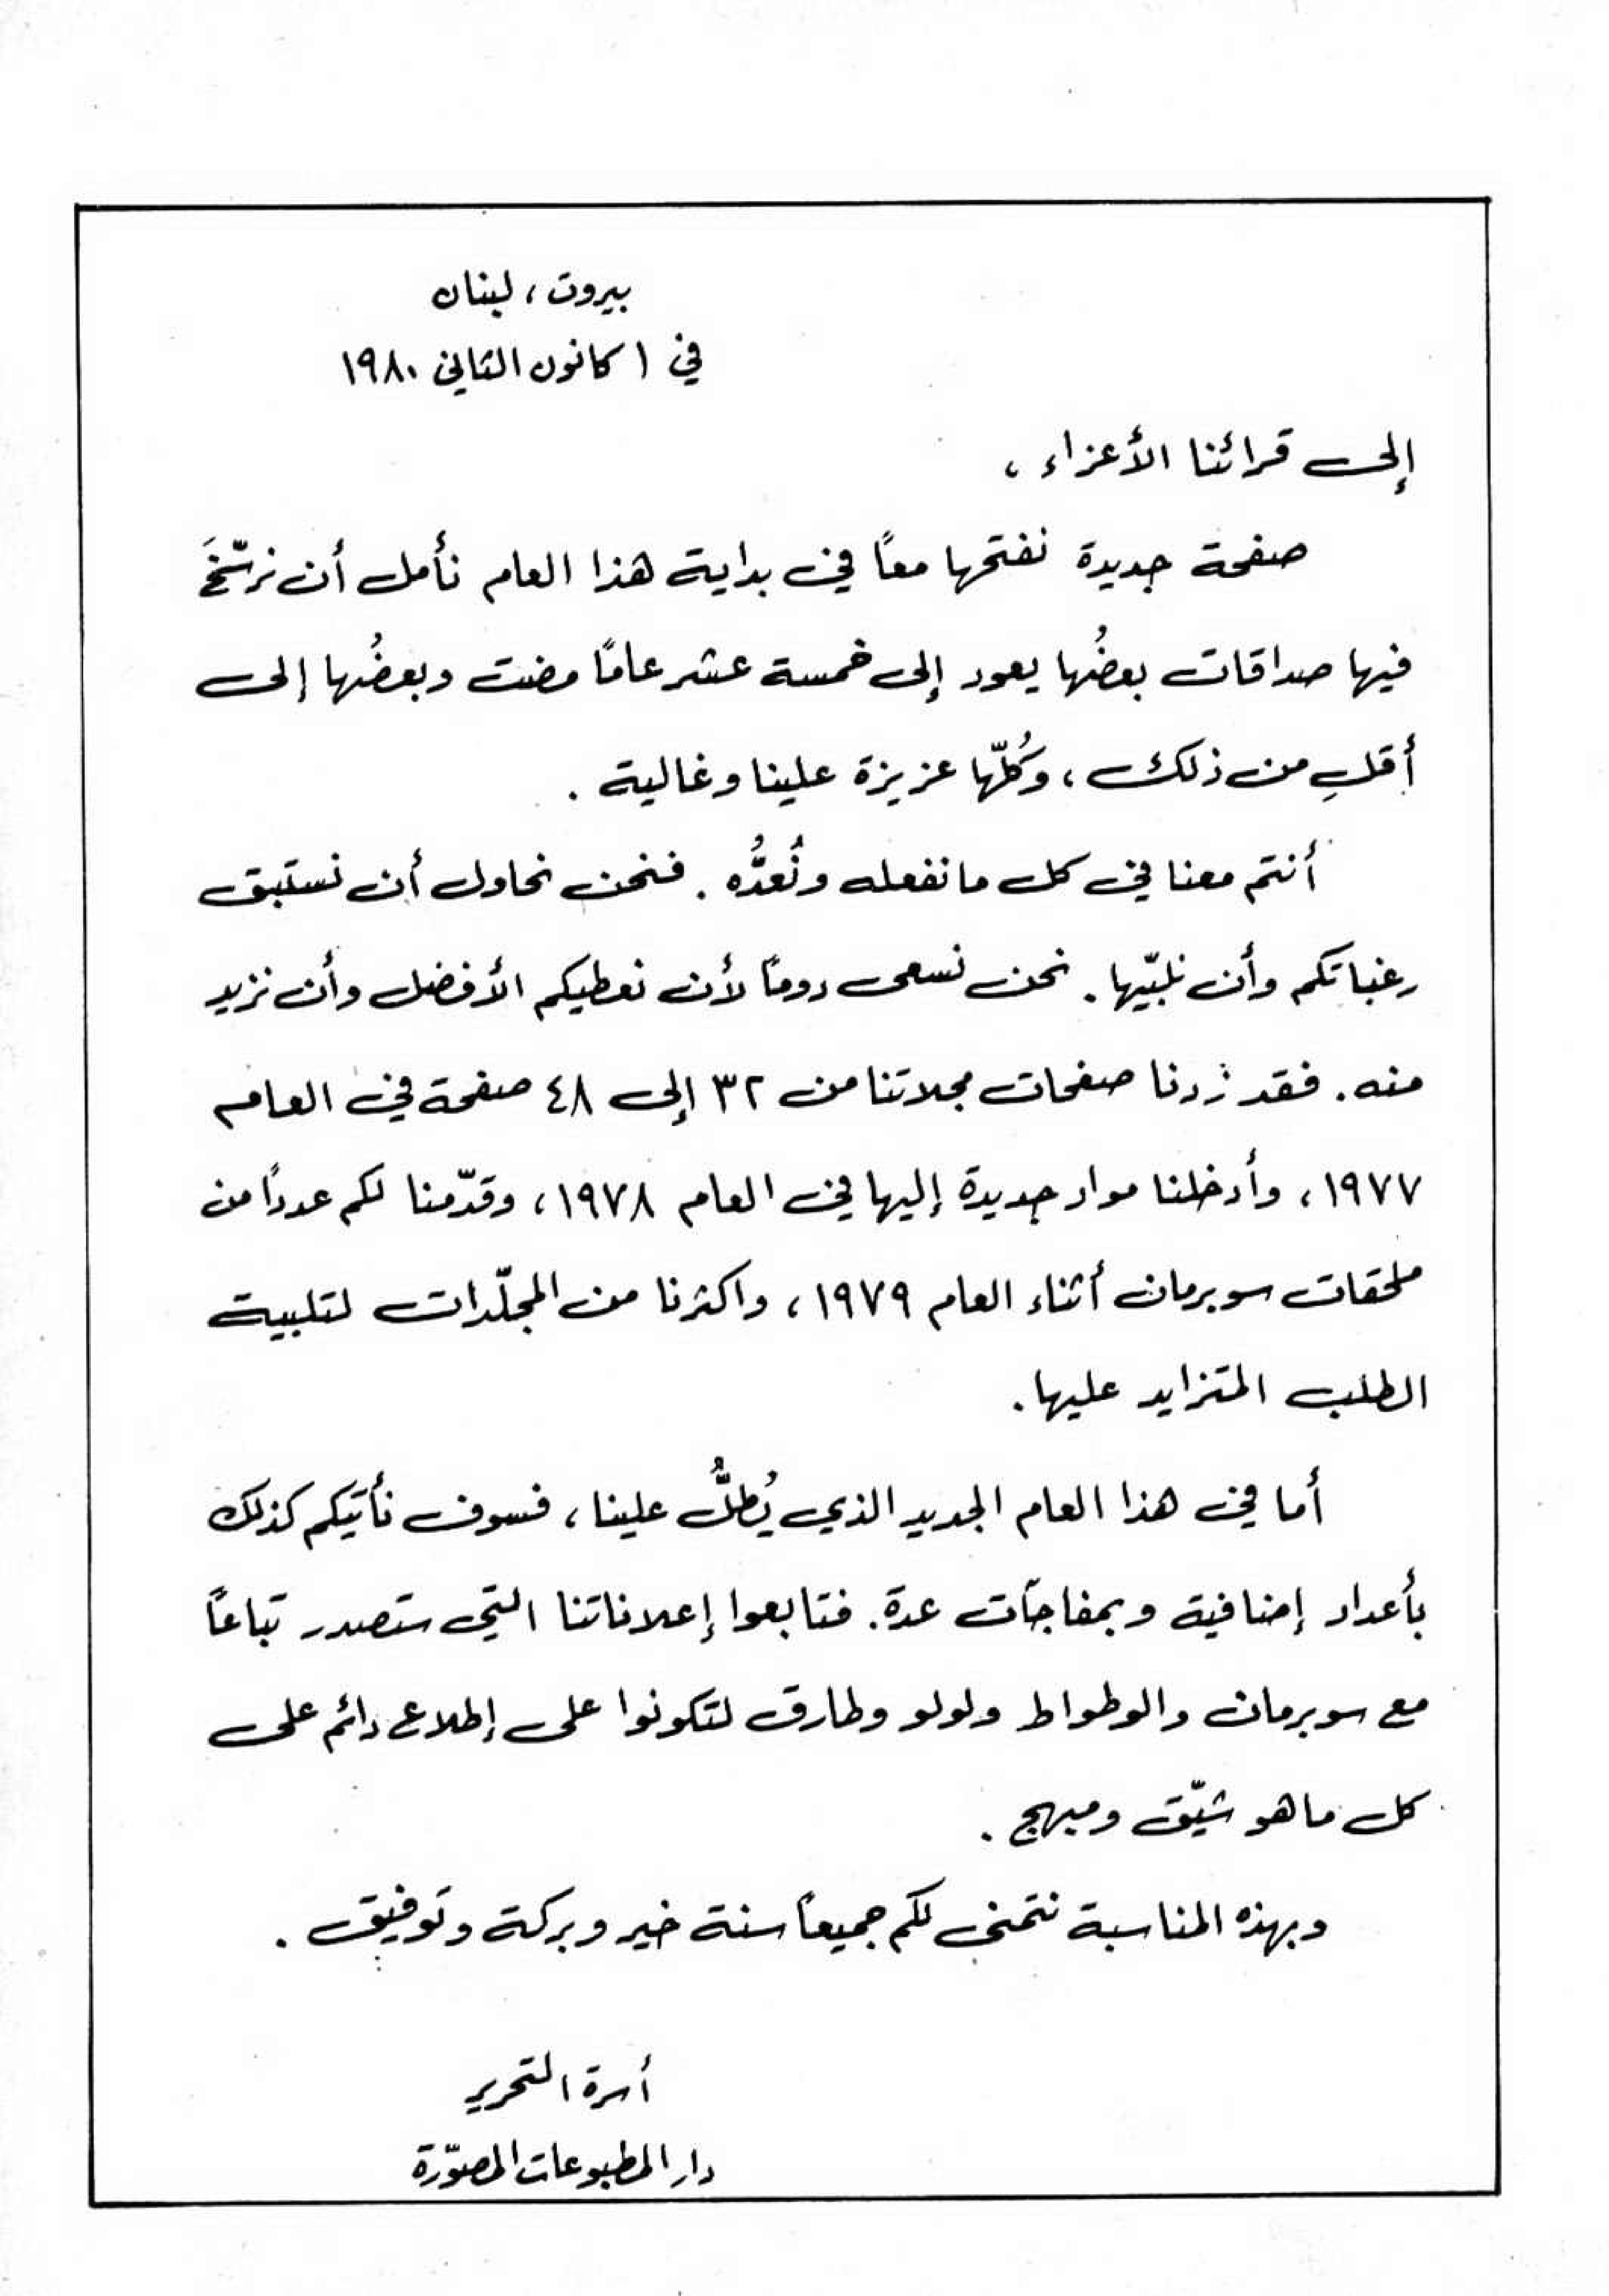 بيروت، لبنان
في ١ كانون الثاني ١٩٨٠
إلى قرائنا الأعزاء،
صفحة جديدة نفتحها معاً في بداية هذا العام نأمل أن نرسّخَ
فيها صداقات بعضُها يعود إلى خمسة عشر عامًا مضت وبعضُها إلى
أقلِ من ذلك، وكُلّها عزيزة علينا وغالية.
أنتم معنا في كل ما نفعله ونُعدُّه. فنحن نحاول أن نستبق
رغباتكم وأن نلبّيها. نحن نسعى دومًا لأن نعطيكم الأفضل وأن نزيد
منه. فقد زدنا صفحات مجلاتنا من ٣٢ إلى ٤٨ صفحة في العام
١٩٧٧، وأدخلنا مواد جديدة إليها في العام ١٩٧٨، وقدّمنا لكم عددًا من
ملحقات سوبرمان أثناء العام ١٩٧٩، واكثرنا من المجلّدات لتلبية
الطلب المتزايد عليها.
أما في هذا العام الجديد الذي يُطلُّ علينا، فسوف نأتيكم كذلك
بأعداد إضافية وبمفاجآت عدة. فتابعوا إعلاناتنا التي ستصدر تباعاً
مع سوبرمان والوطواط ولولو وطارق لتكونوا على إطلاع دائم على
كل ما هو شيّق ومبهج.
وبهذه المناسبة نتمنى لكم جميعاً سنة خير وبركة وتوفيق.
أسرة التحرير
دار المطبوعات المصوّرة